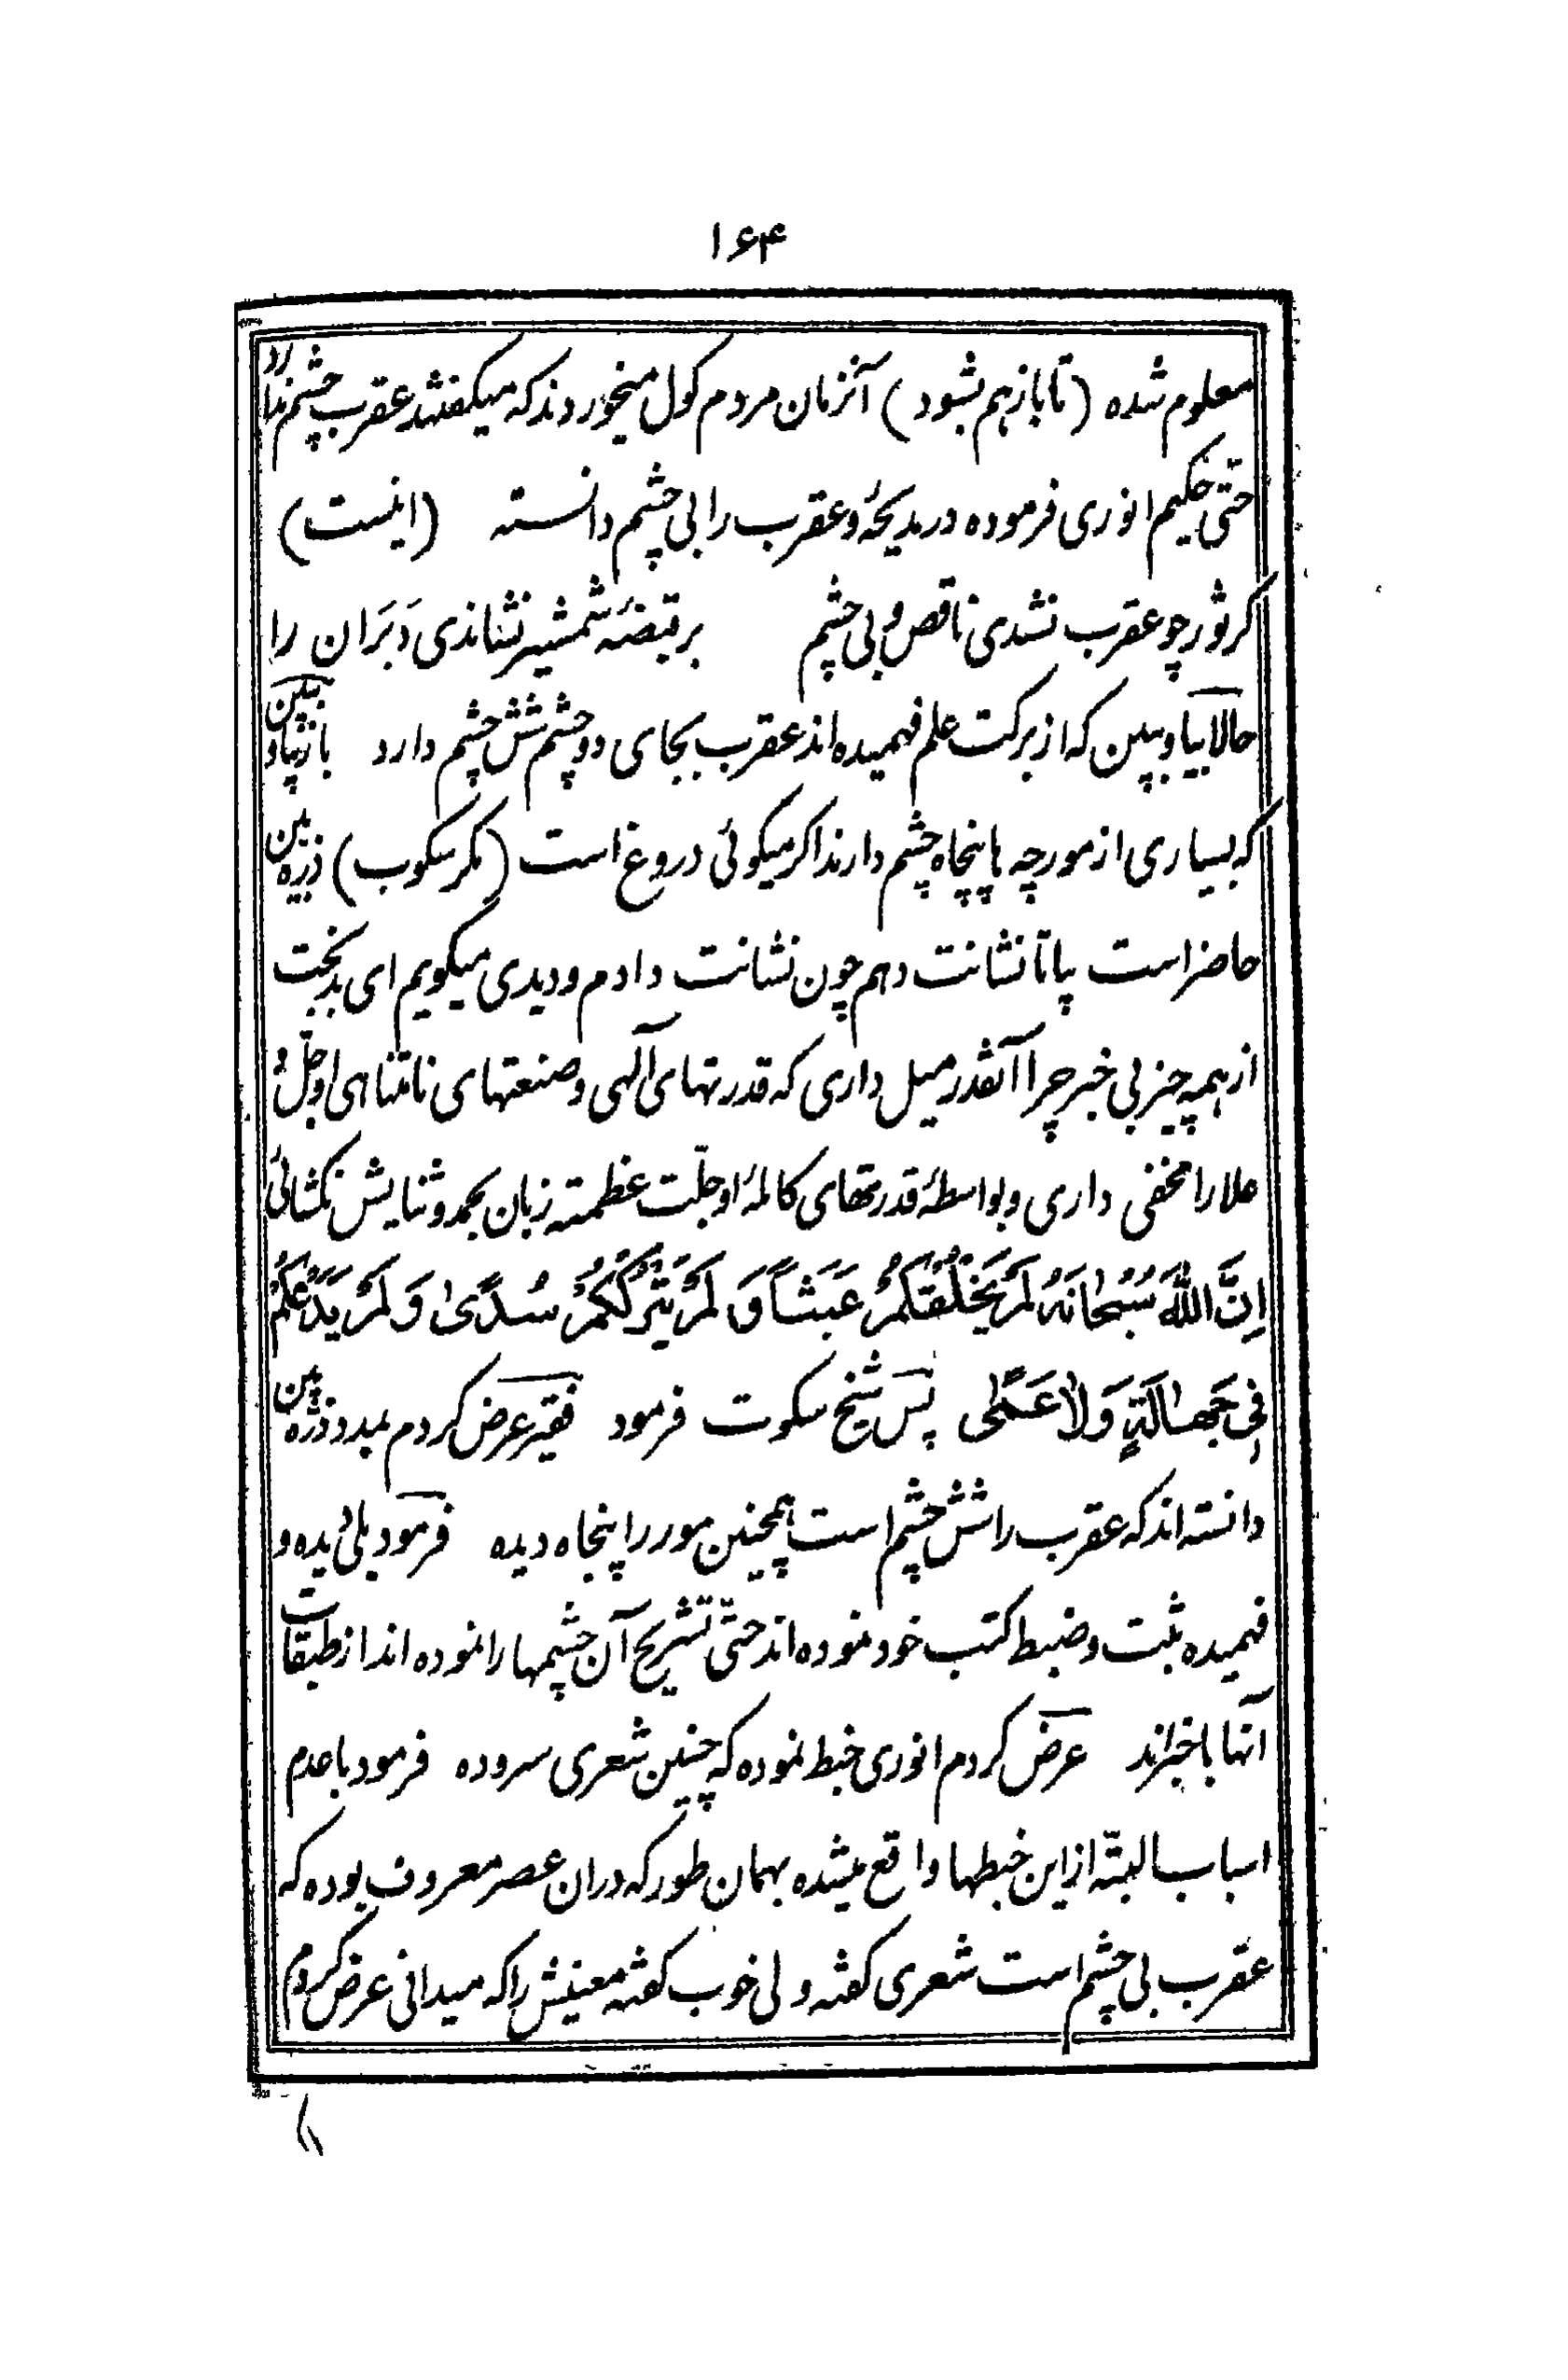 ۱۶۴
معلوم شده (تا باز هم بشود) آنزمان مردم کول میخوردند که میکفتند عقرب چشم ندارد
حتّی حکیم انوری فرموده در مدیحهٔ و عقرب را بی چشم دانسته (اینست)
کر ثور چو عقرب نشدی ناقص و بی چشم برقبضهٔ شمشیر نشاندی دَبَران را
حالا بیا و ببین که از برکت علم فهمیده اند عقرب بجای دو چشم شش چشم دارد باز بیا و ببین
که بسیاری از مورچه ها پنجاه چشم دارند اکر میکوئی دروغ است (مکرسکوب) ذره بین
حاضر است بیا تا نشانت دهم چون نشانت دادم و دیدی میکویم ای بدبخت
از همه چیز بی خبر چرا آنقدر میل داری که قدرتهای آلهی و صنعتهای نامتناهی او جلّ و
علا را مخفی داری و بواسطهٔ قدرتهای کاملهٔ او جلّت عظمته زبان بحمد و ثنایش نکشائی
اِنَّ اللهَ سُبْحانَهُ لَمْ یَخْلُقْکُمْ عَبَثاً وَ لَمْ یَتْرُکْکُمْ سُدًی وَ لَمْ یَدَعْکُمْ
فی جَهالَةٍ وَلا عَمًی پس شیخ سکوت فرمود فقیر عرض کردم بمدد ذره بین
دانسته اند که عقرب را شش چشم است همچنین مور را پنجاه دیده فرمود بلی دیده و
فهمیده ثبت و ضبط کتب خود نموده اند حتّی تشریح آن چشمها را نموده اند از طبقات
آنها با خبراند عرض کردم انوری خبط نموده که چنین شعری سروده فرمود با عدم
اسباب البتّه از این خبطها واقع میشده بهمان طور که دران عصر معروف بوده که
عقرب بی چشم است شعری کفته ولی خوب کفته معنیش را که میدانی عرض کردم